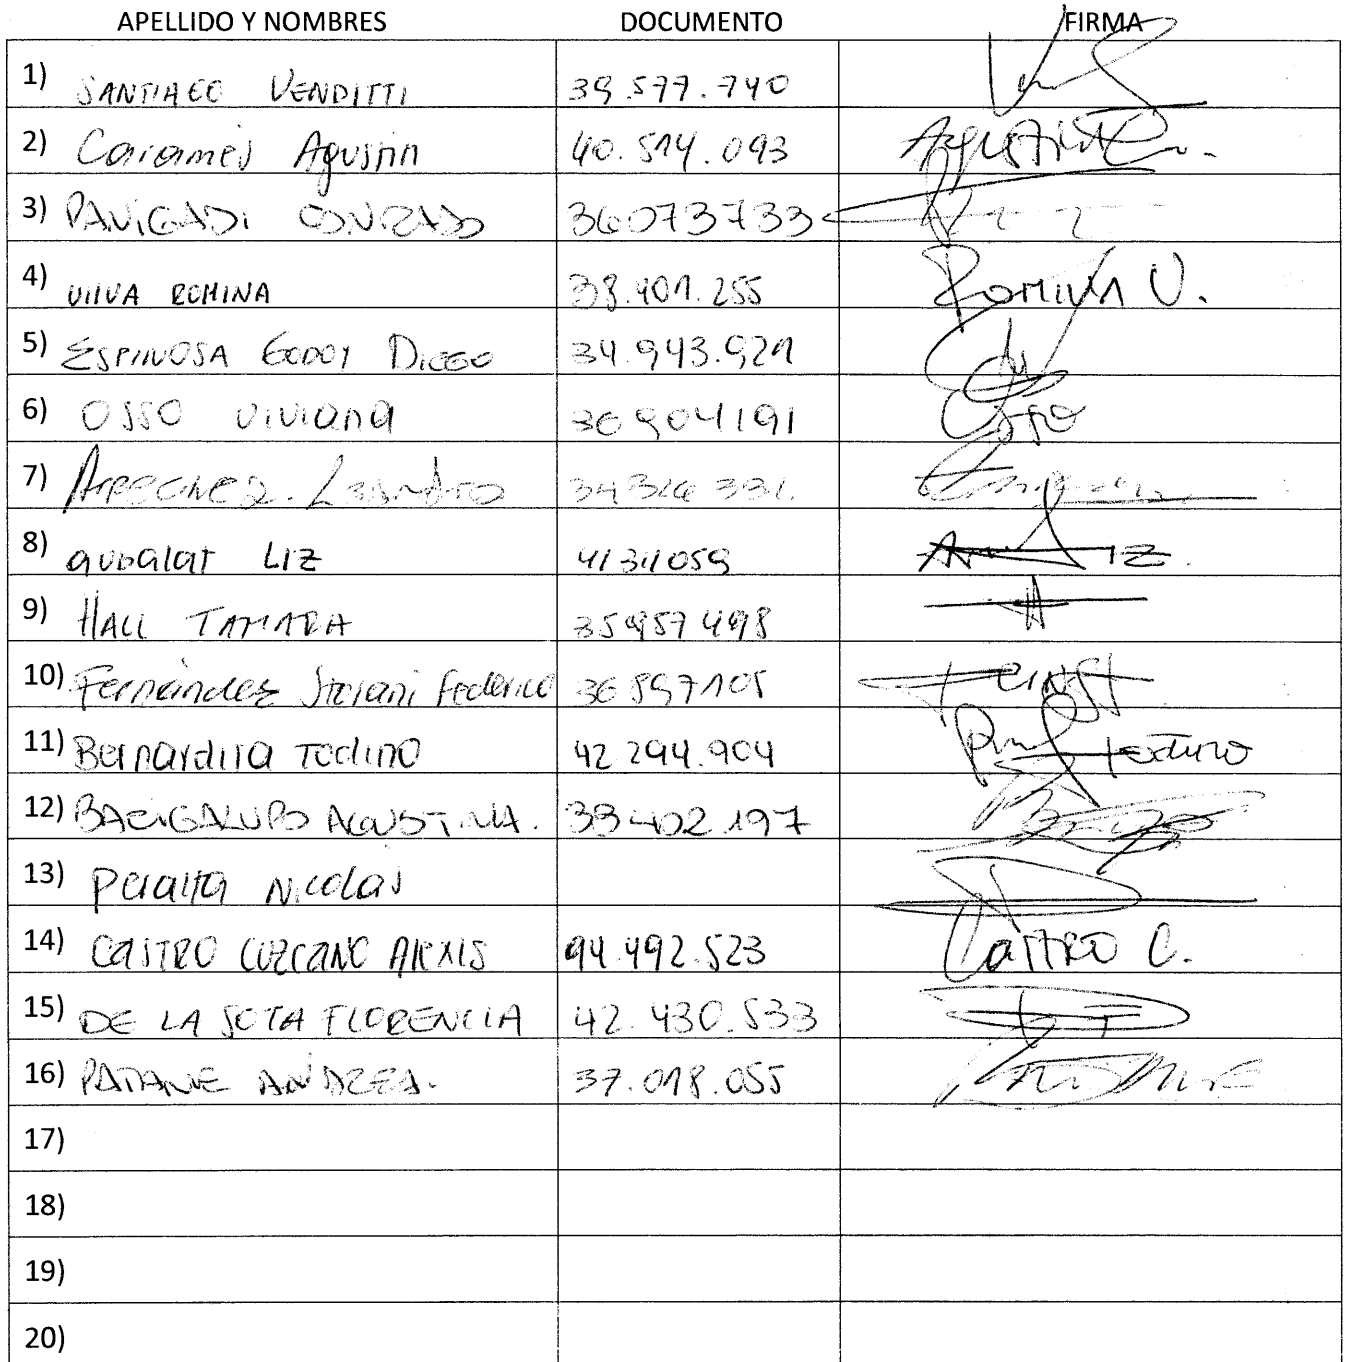 APELLIDO Y NOMBRES DOCUMENTO FIRMA
1) SANTIAGO VENDITTI 39.577.740
2) Caramés Agustín 40.514.093 AGUSTIN C.
3) PANIGADI GONZALO 36073733
4) VIIVA ROMINA 38.401.255 ROMINA V.
5) ESPINOSA GODOY DIEGO 34.943.921
6) OSSO VIVIANA 36904191 Osso
7) Leandro
8) aubalat LIZ 41311059 LIZ
9) HALL TAMARA 35957498 H
10) Fernández Stefani Federico 36897105
11) Bernardita Todino 42 294.904 Todino
12) BACIGALUPO AGUSTINA. 38402197
13) Peralta Nicolás
14) CASTRO ALEXIS 94.492.523 CASTRO C.
15) DE LA SOTA FLORENCIA 42.430.533
16) PATANE ANDREA. 37.018.055
17)
18)
19)
20)